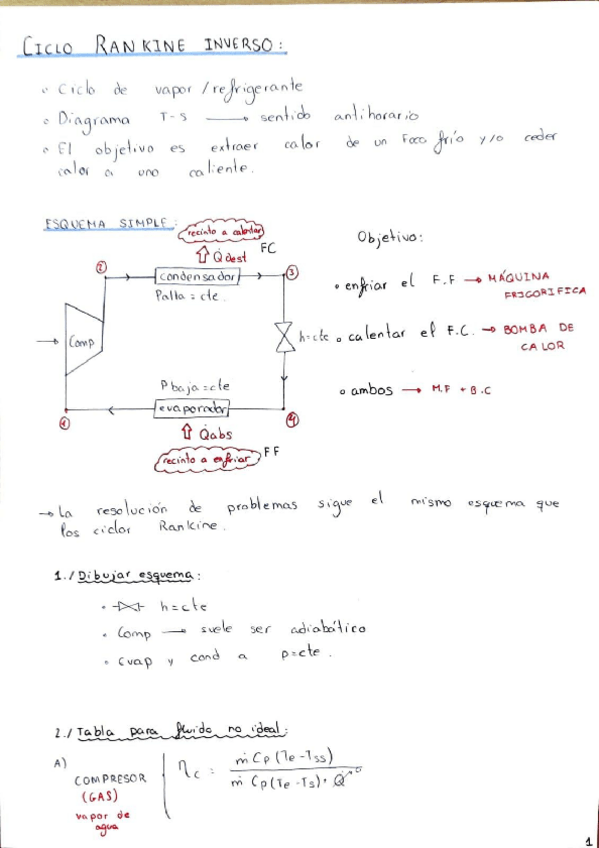 CICLO RANKINE INVERSO:
• Ciclo de vapor/refrigerante
• Diagrama T-S → sentido antihorario
• El objetivo es extraer calor de un Foco frío y/o ceder
calor a uno caliente.
ESQUEMA SIMPLE:
recinto a calentar
FC
Q̇dest
Objetivo:
2
condensador
3
Palta = cte.
• enfriar el F.F → MÁQUINA
FRIGORIFICA
Comp
h=cte
• calentar el F.C. → BOMBA DE
CALOR
Pbaja=cte
• ambos → M.F + B.C
evaporador
1
4
Q̇abs
recinto a enfriar
FF
→ La resolución de problemas sigue el mismo esquema que
los ciclor Rankine.
1./ Dibujar esquema:
• h=cte
• Comp → suele ser adiabático
• evap y cond a p=cte.
2./ Tabla para fluido no ideal:
A)
COMPRESOR
(GAS)
vapor de
agua
ηc = ṁ Cp (Te-Tss)
ṁ Cp (Te-Ts) + Q̇ 0
1